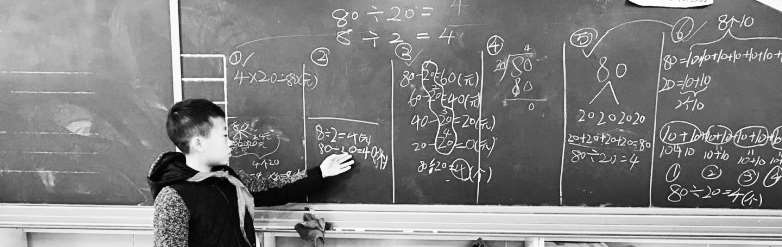 80÷20=4
8÷2=4
①
4×20=80(元)
②
8÷2=4(元)
80÷20=4(个)
③
80-20=60(元)
60-20=40(元)
40-20=20(元)
20-20=0(元)
80÷20=4(个)
④
4
20
80
80
0
⑤
80
20 20 20 20
20+20+20+20=80
80÷20=4
⑥
8个10
80=10+10+10+10+10+10+1
20=10+10
2个10
10+10+10+10+10+10+
10+10
10+10
10+10
①
②
③
④
80÷20=4(个)